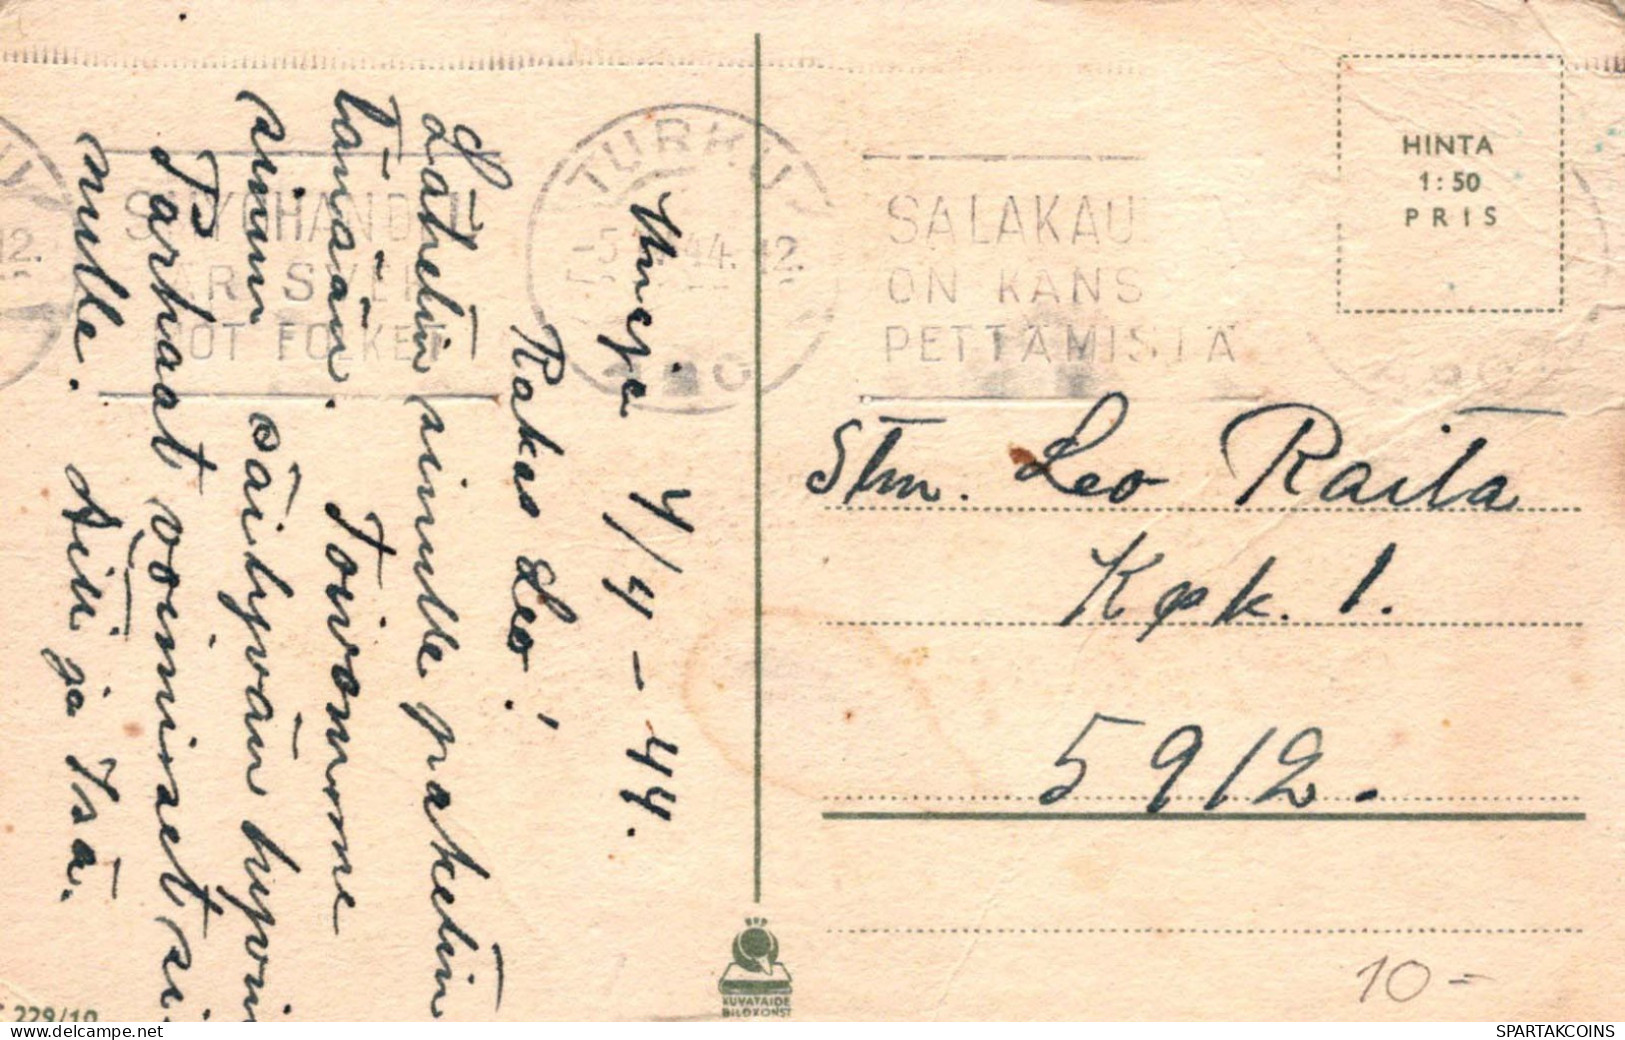 4/4-44.
Rakas Leo!
Lähetin sinulle paketin
tänään. Toivomme
sinun säilyvän hyvin
Parhaat voinniset si-
nulle. Äiti ja Isä.
TURKU
-5.4.44.12
ÅBO
SALAKAU
ON KANS
PETTÄMISTÄ
HINTA
1:50
PRIS
Stm. Leo Raita
Kpk. 1.
5912.
KUVATAIDE
BILDKONST
229/10
10-
SPARTAKCOINS
delcampe.net